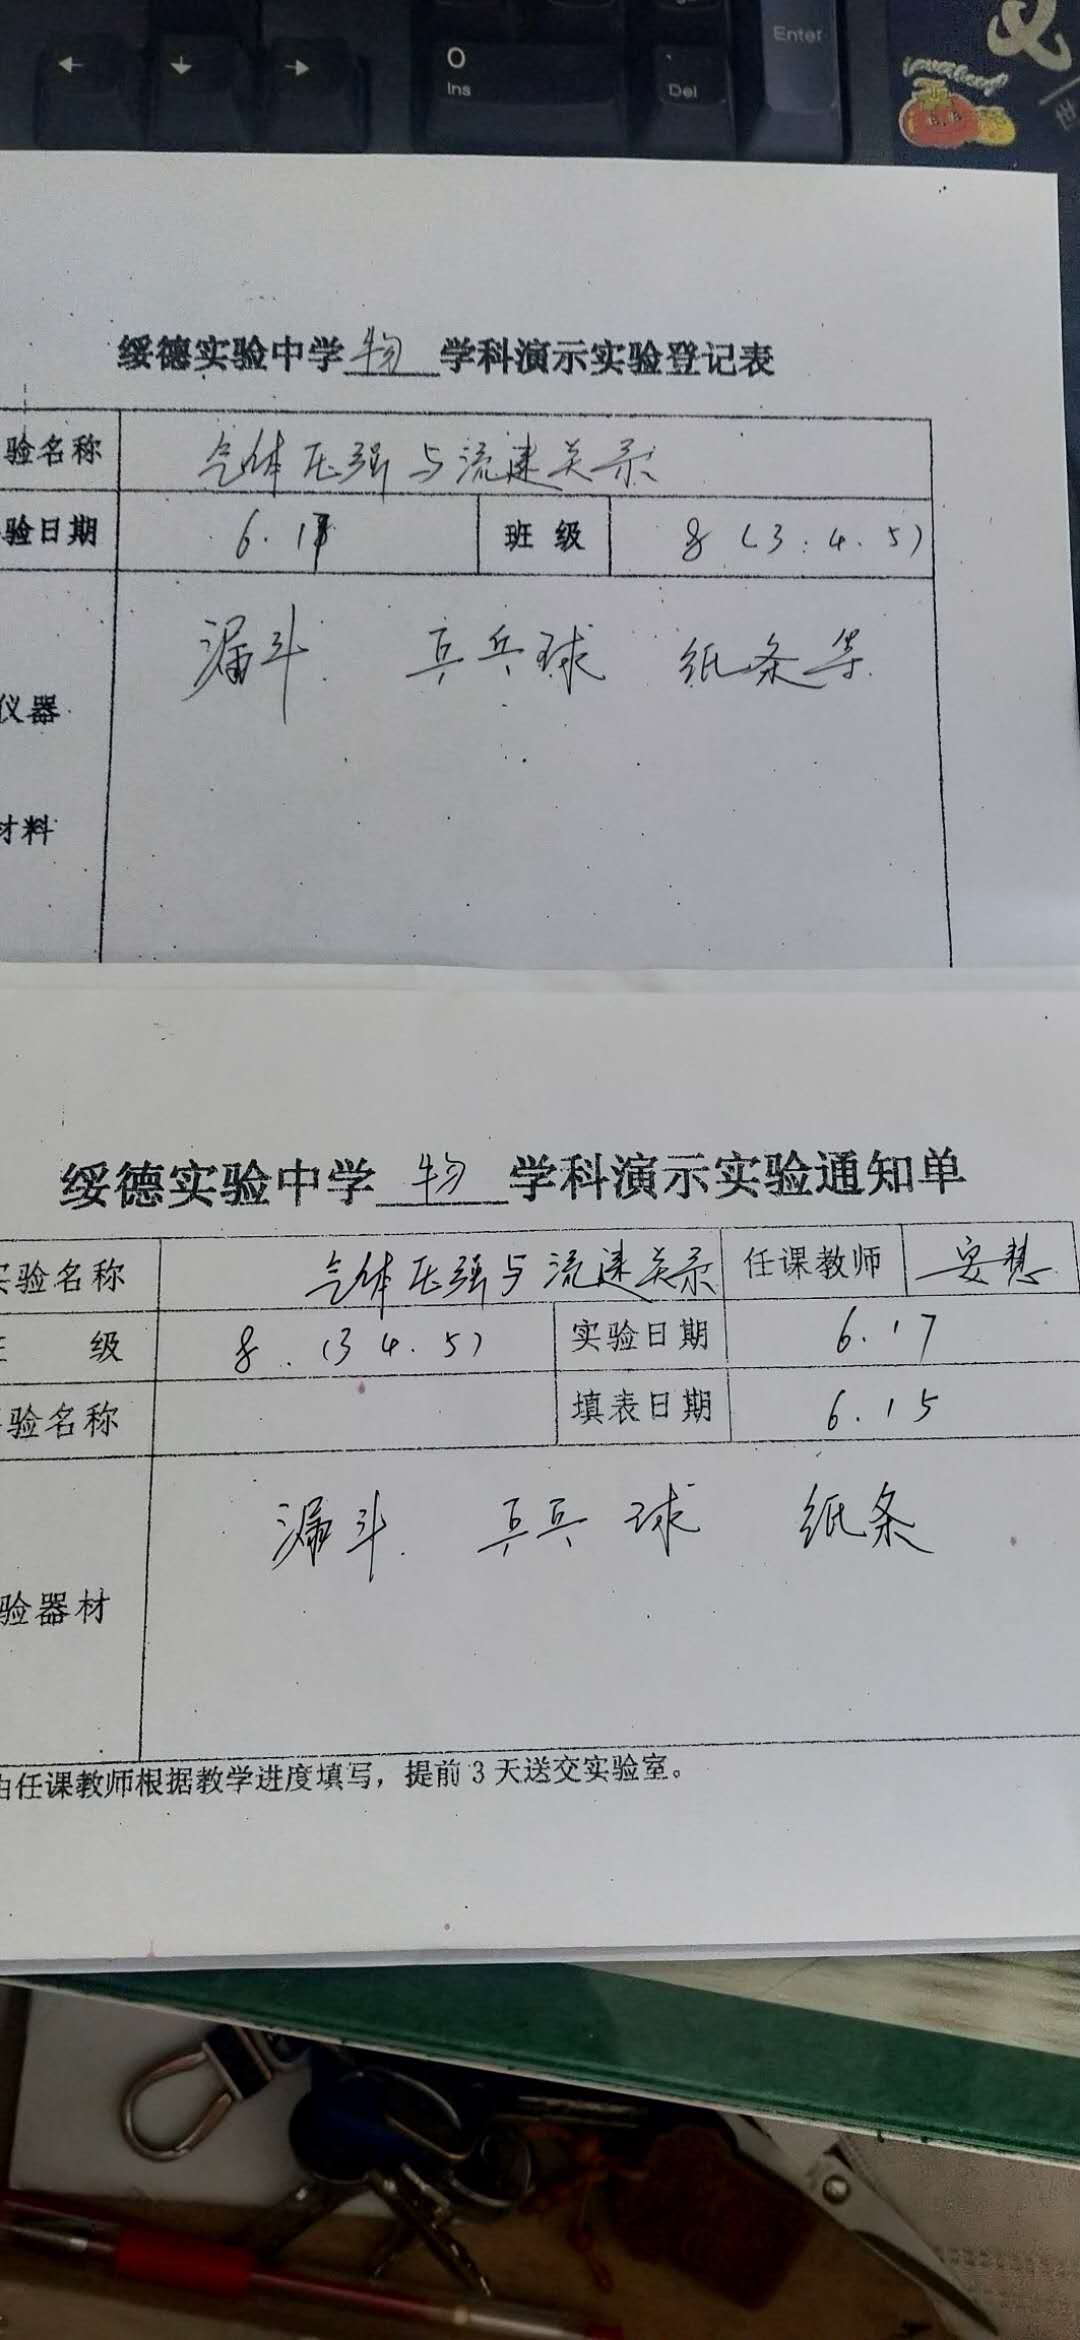 Enter
← ↓ → 0 .
Ins Del
绥德实验中学 物 学科演示实验登记表
验名称 气体压强与流速关系
验日期 6.17 班级 8(3.4.5)
漏斗 乒乓球 纸条等
仪器
材料
绥德实验中学 物 学科演示实验通知单
实验名称 气体压强与流速关系 任课教师 安慧
级 8.(3 4.5) 实验日期 6.17
验名称 填表日期 6.15
漏斗 乒乓球 纸条
验器材
由任课教师根据教学进度填写，提前3天送交实验室。